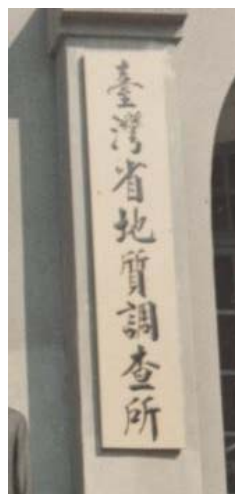 臺灣省地質調查所